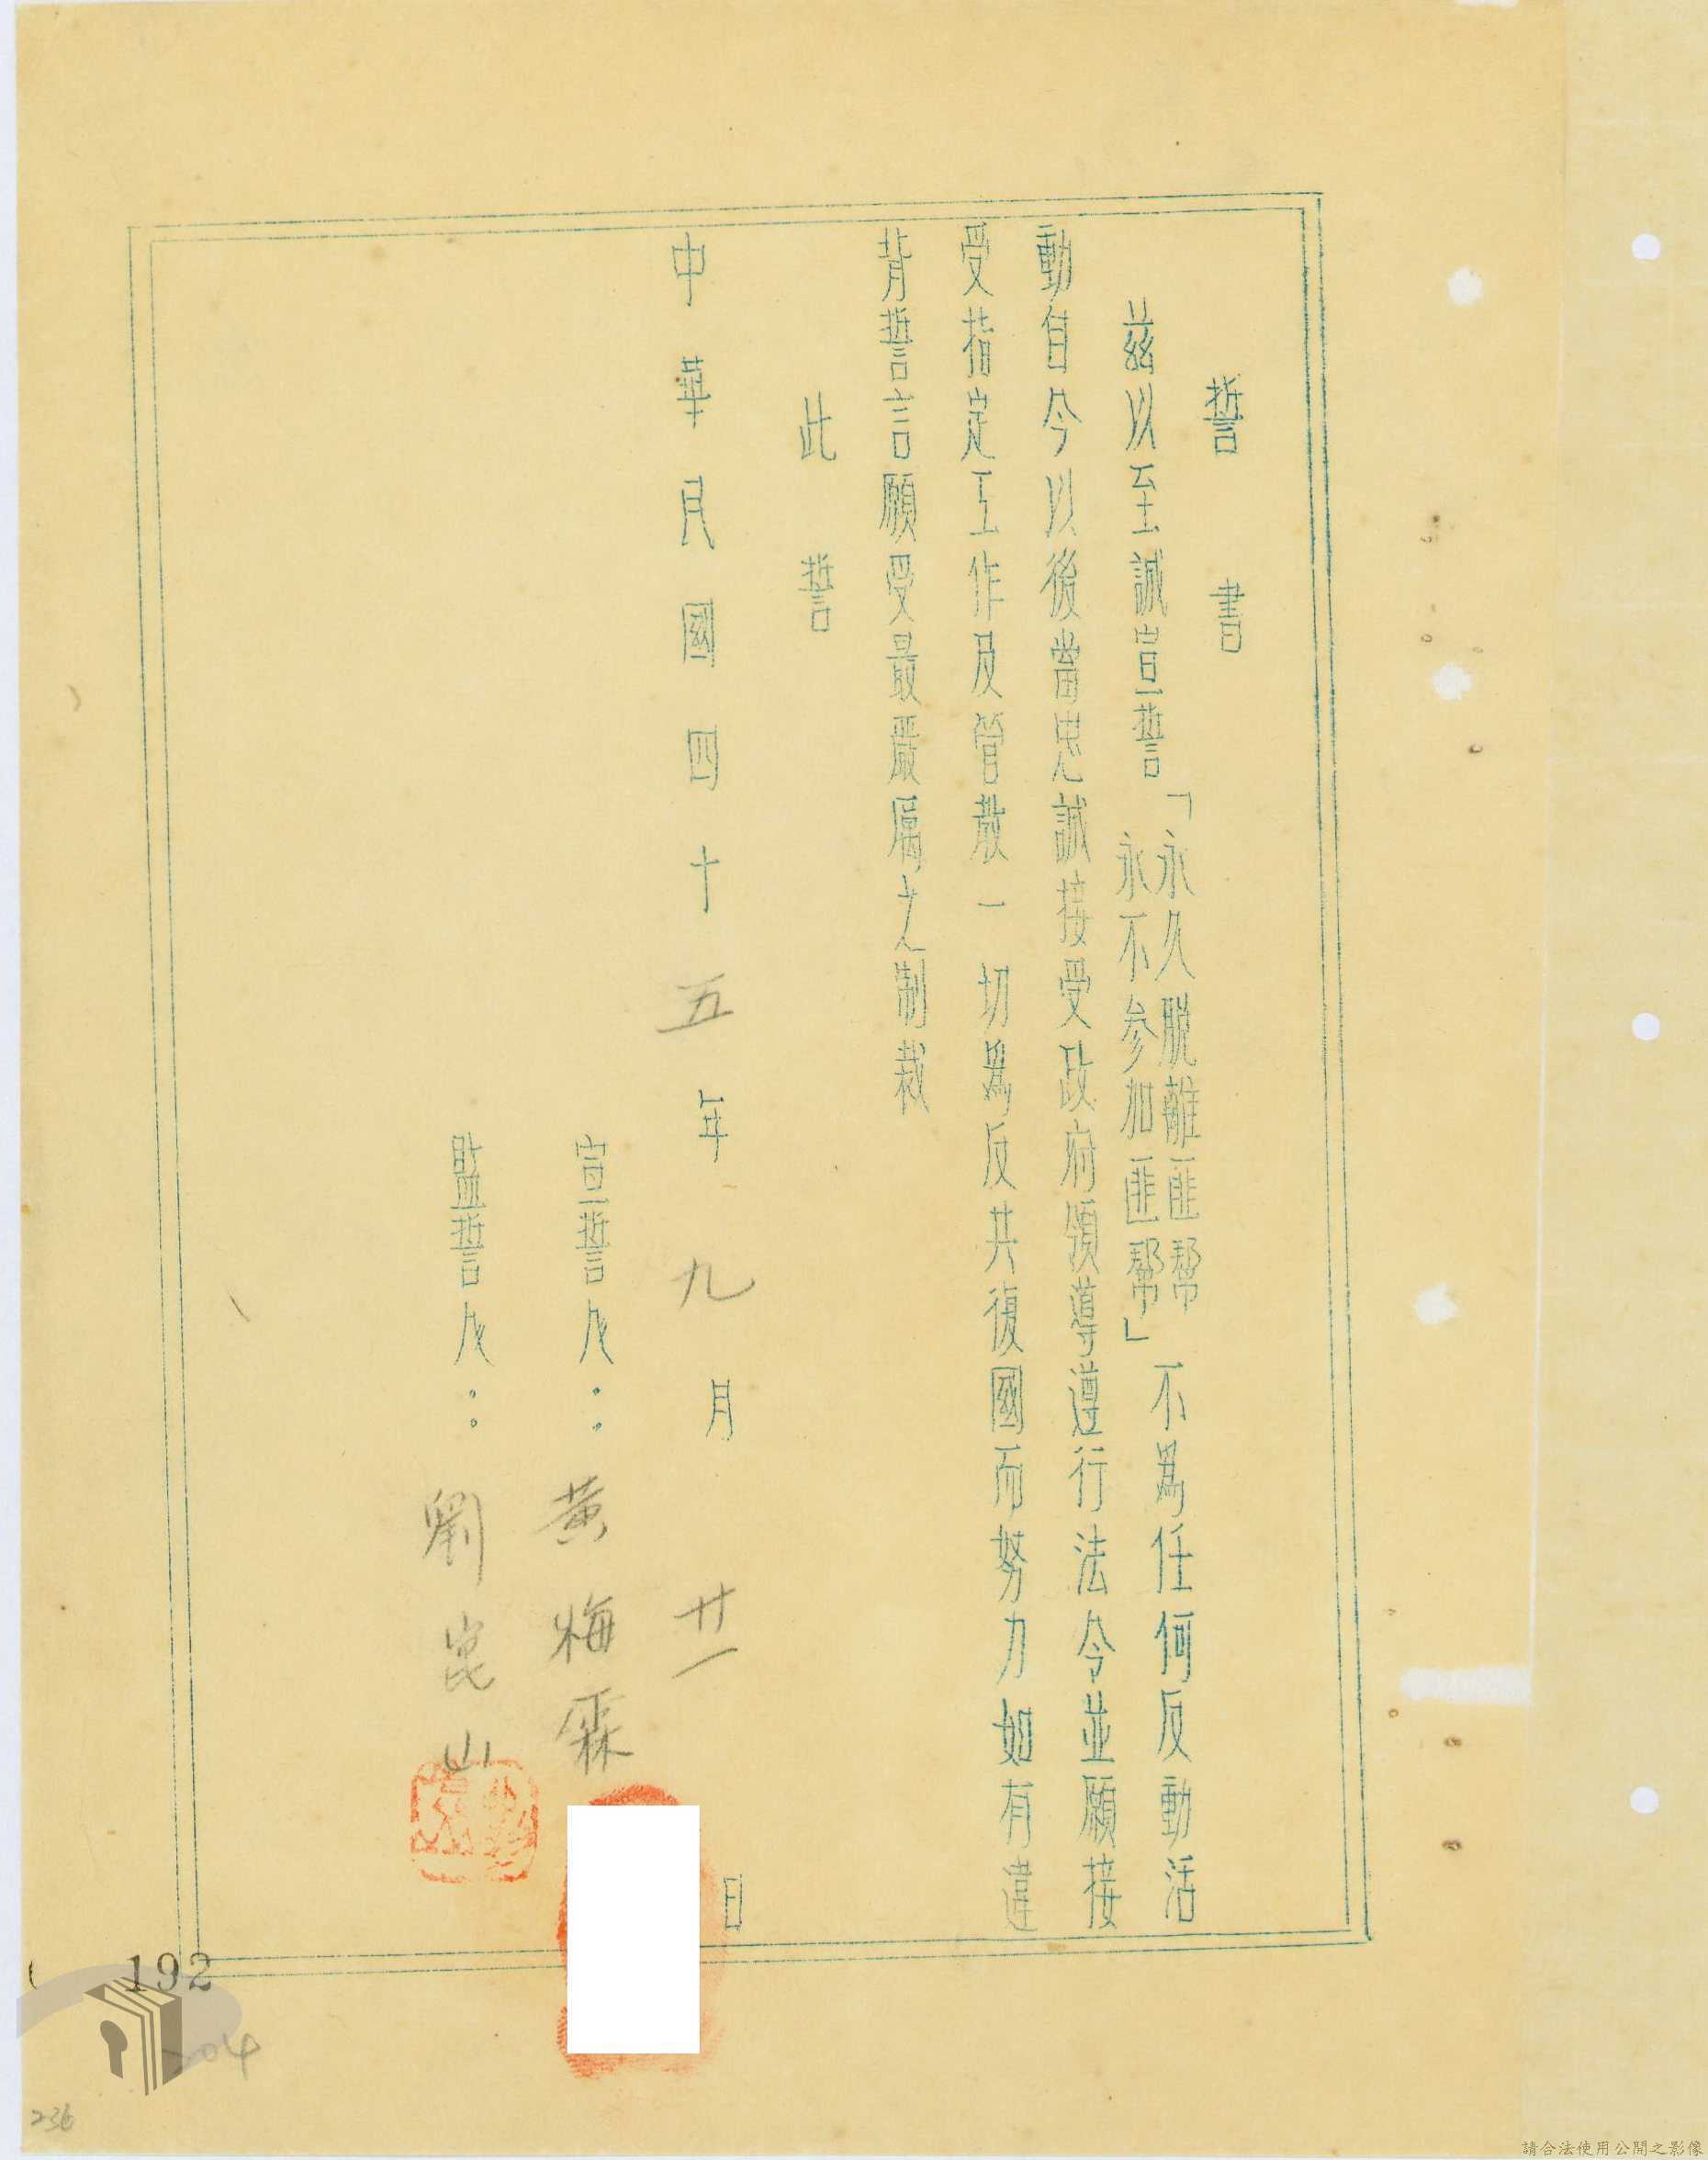 誓書
茲以至誠宣誓「永久脫離匪幫
永不參加匪幫」不為任何反動活
動自今以後當忠誠接受政府領導遵行法令並願接
受指定工作及管教一切為反共復國而努力如有違
背誓言願受最嚴厲之制裁
此誓
中華民國四十五年九月廿一日
宣誓人：黃梅霖
監誓人：劉崑山
192
204
236
請合法使用公開之影像